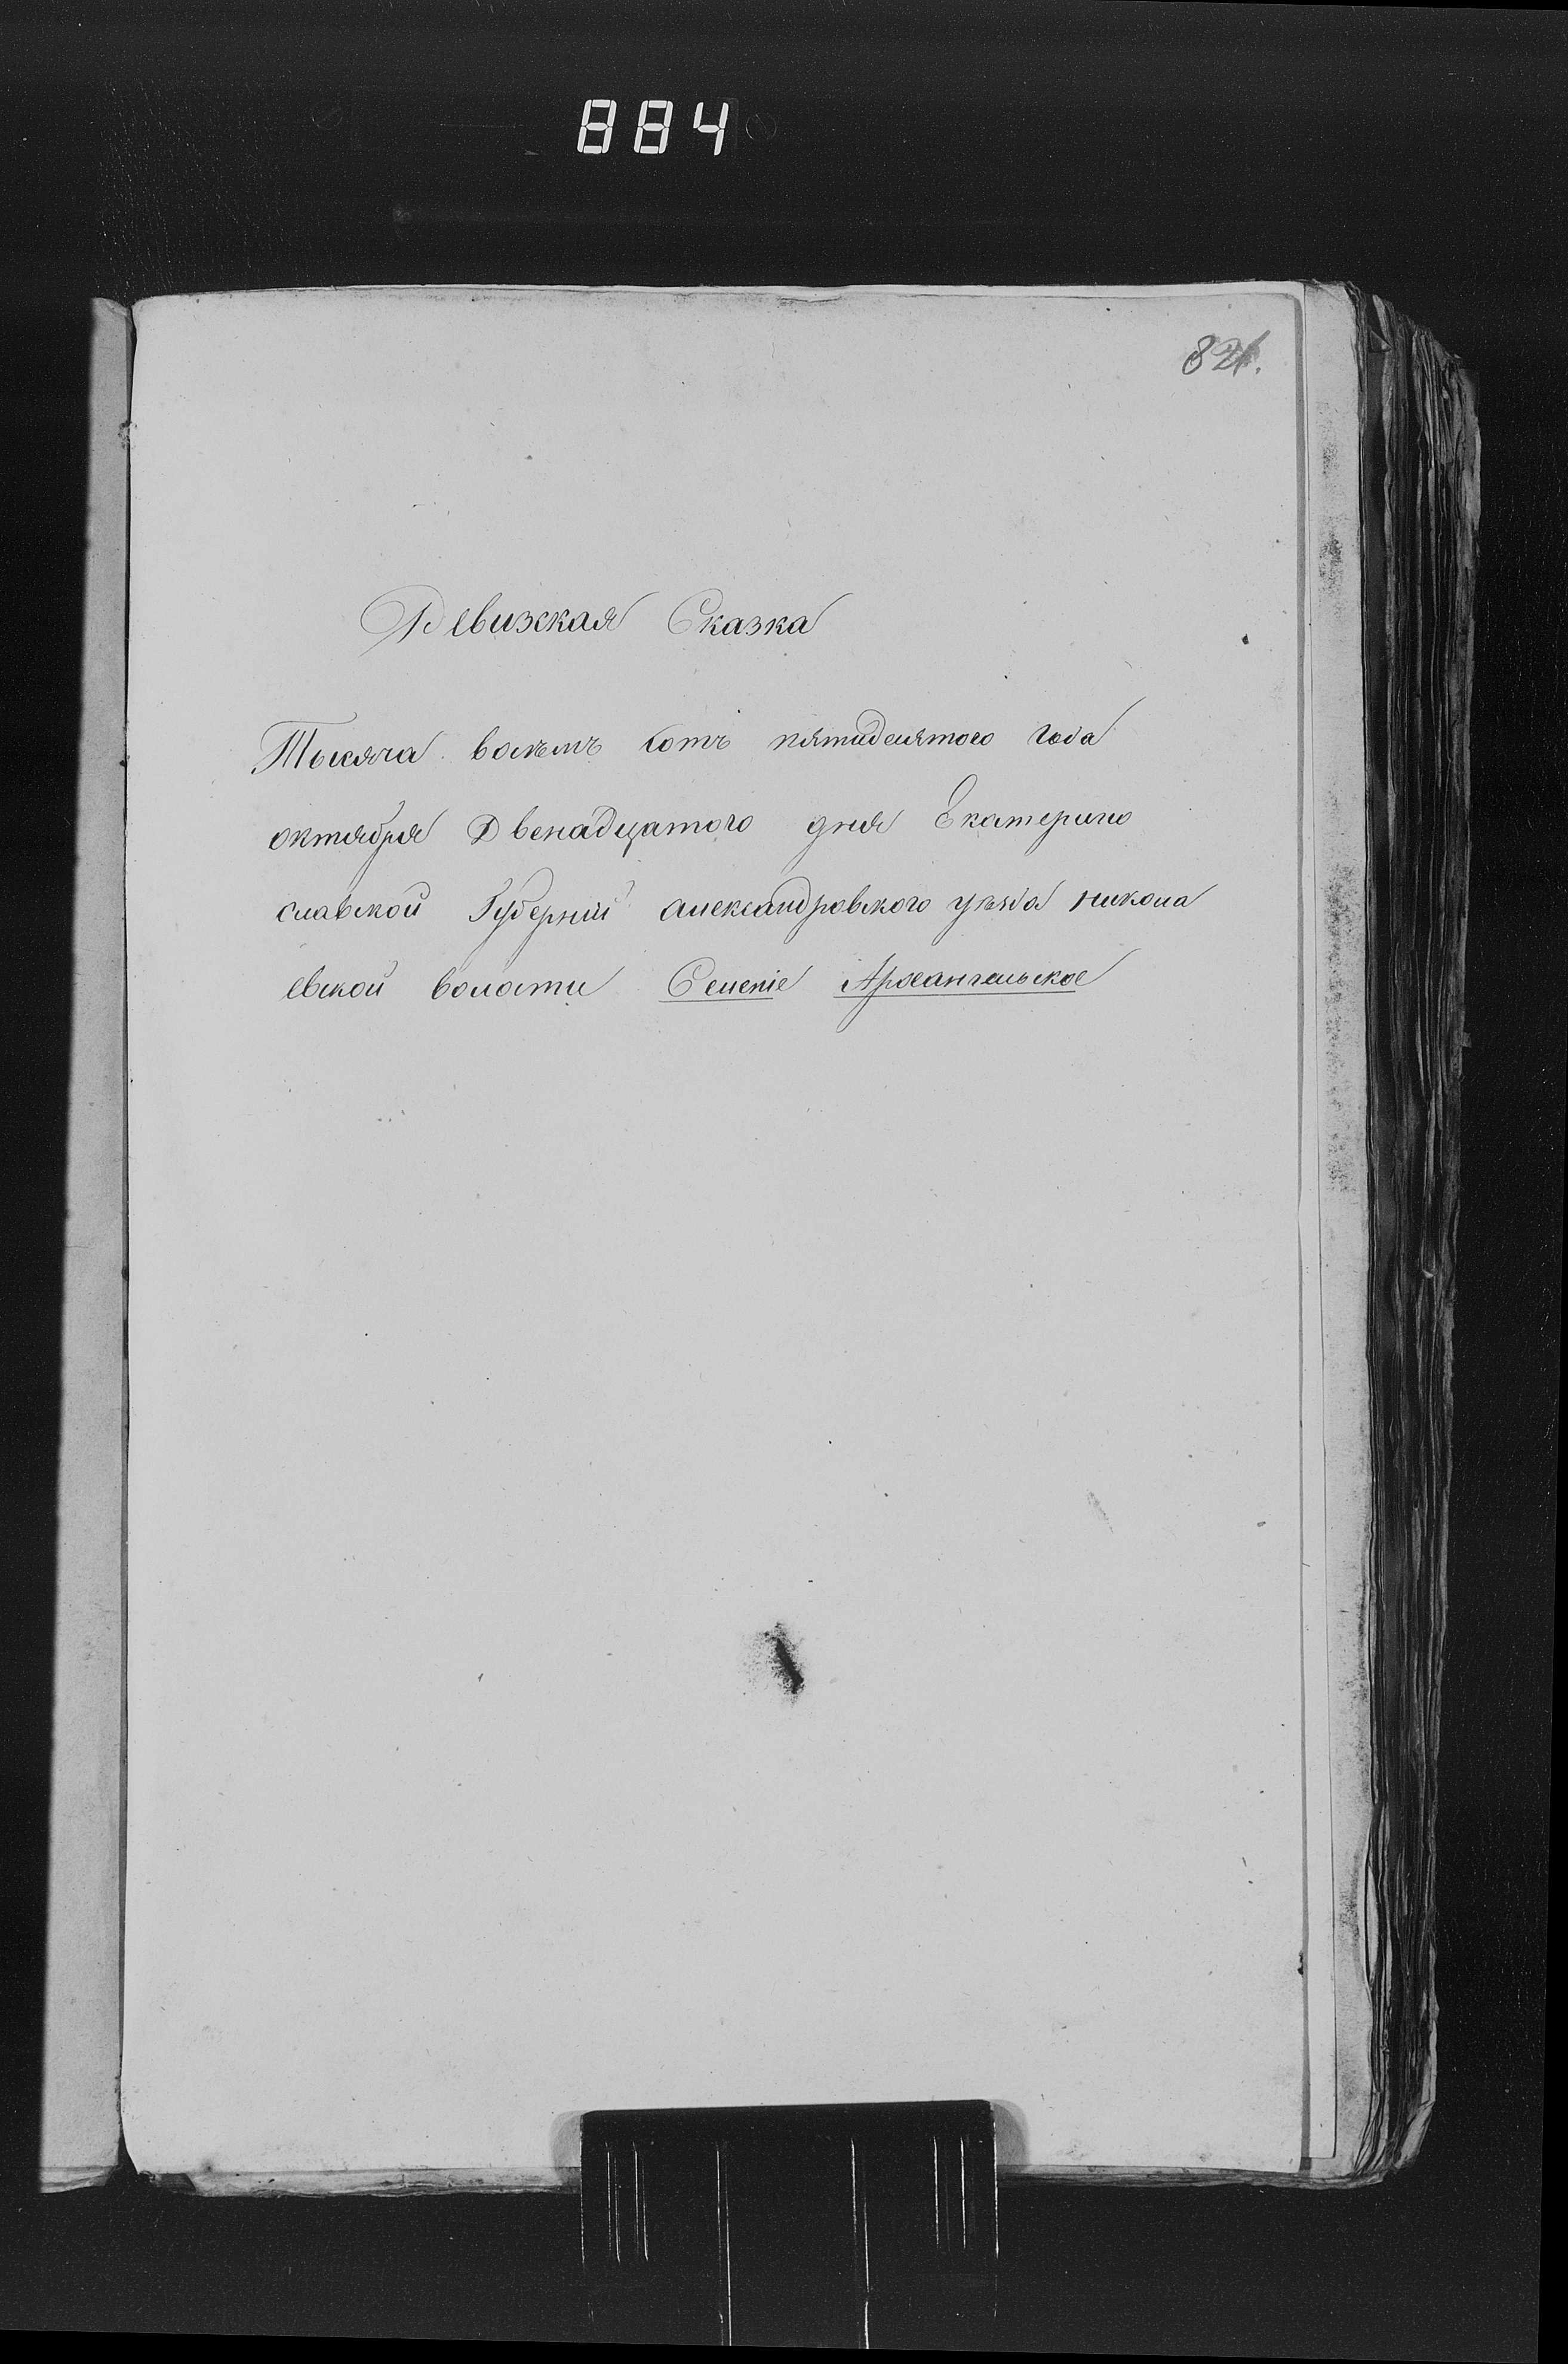 884
821.
Ревизская Сказка
Тысяча восемъ сотъ пятидесятого года
октября Двенадцатого дня Екатерино
славской Губернии александровского уезда никола
евской волости Селеніе Архангельское